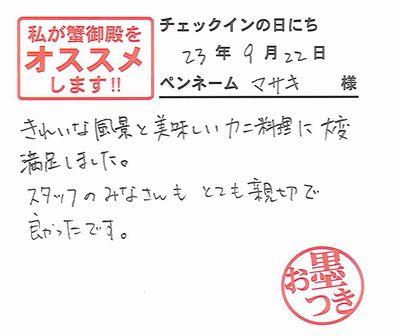 私が蟹御殿を
オススメ
します!!
チェックインの日にち
23年9月22日
ペンネーム マサキ 様
きれいな風景と美味しいカニ料理に大変
満足しました。
スタッフのみなさんも とても親切で
良かったです。
お墨
つき